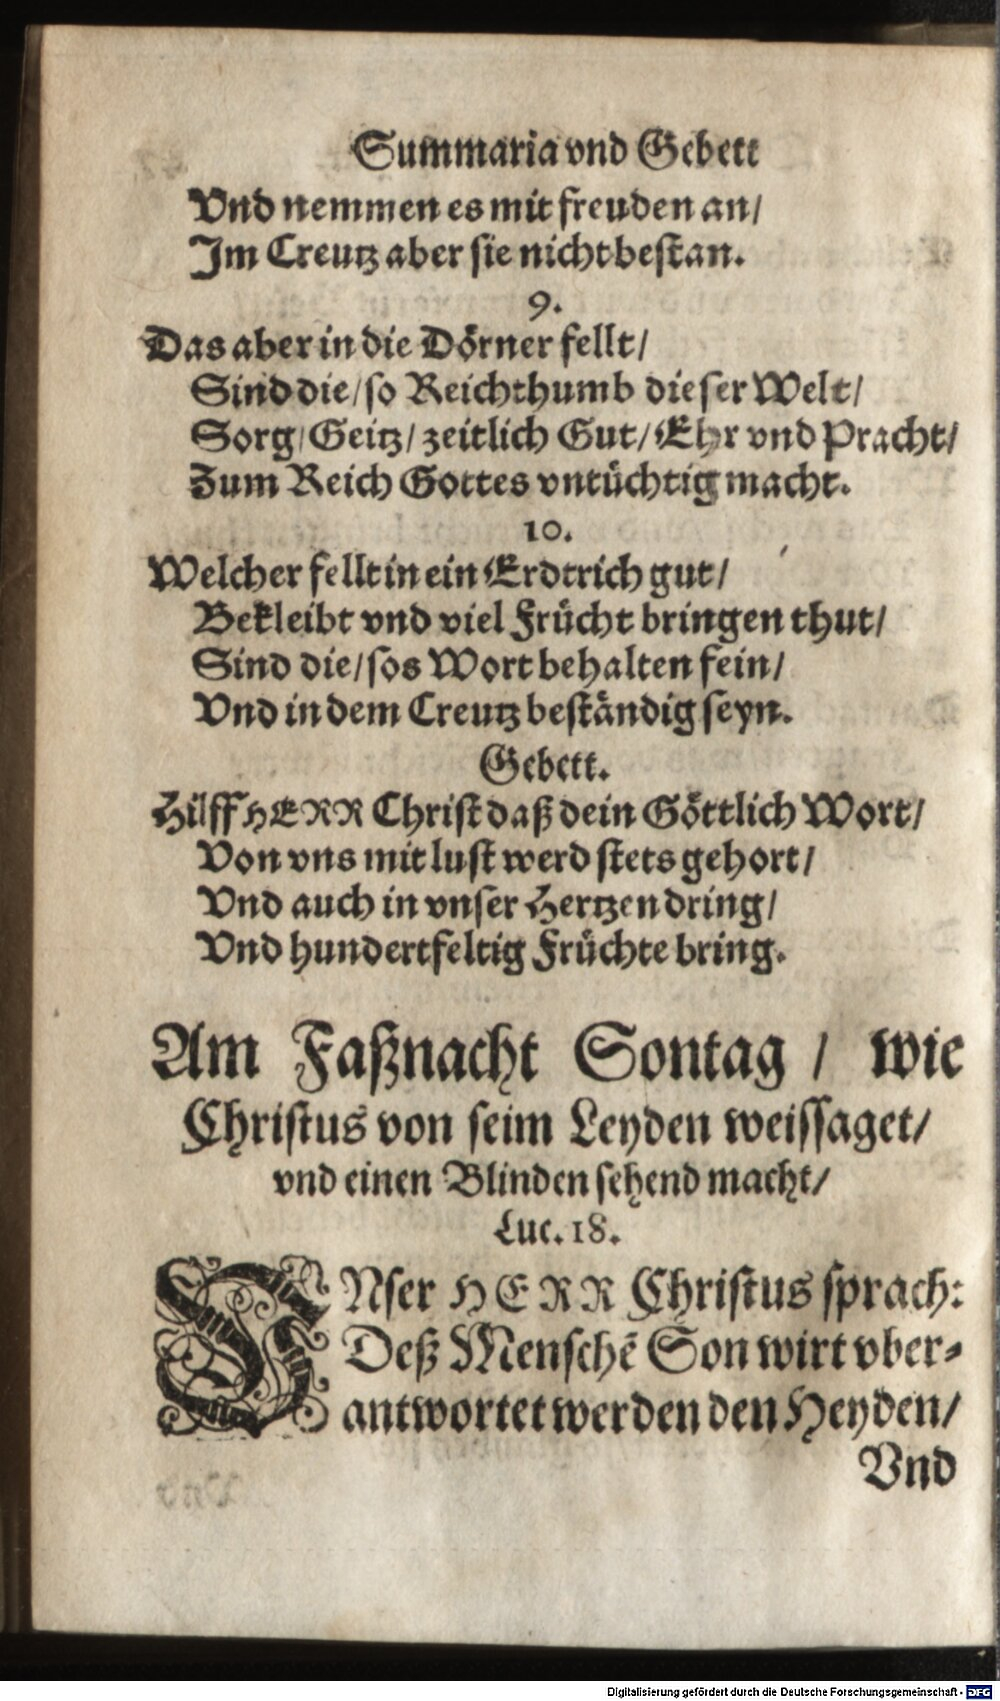 Summaria vnd Gebett
Vnd nemmen es mit freuden an/
Im Creutz aber sie nicht bestan.
9.
Das aber in die Dörner fellt/
Sind die/ so Reichthumb dieser Welt/
Sorg/ Geitz/ zeitlich Gut/ Ehr vnd Pracht/
Zum Reich Gottes vntüchtig macht.
10.
Welcher fellt in ein Erdtrich gut/
Bekleibt vnd viel Frücht bringen thut/
Sind die/ sos Wort behalten fein/
Vnd in dem Creutz beständig seyn.
Gebett.
Hilff HERR Christ daß dein Göttlich Wort/
Von vns mit lust werd stets gehort/
Vnd auch in vnser Hertzen dring/
Vnd hundertfeltig Früchte bring.
Am Faßnacht Sontag / wie
Christus von seim Leyden weissaget/
vnd einen Blinden sehend macht/
Luc. 18.
VNser HERR Christus sprach:
Deß Menschẽ Son wirt vber-
antwortet werden den Heyden/
Vnd
Digitalisierung gefördert durch die Deutsche Forschungsgemeinschaft - DFG